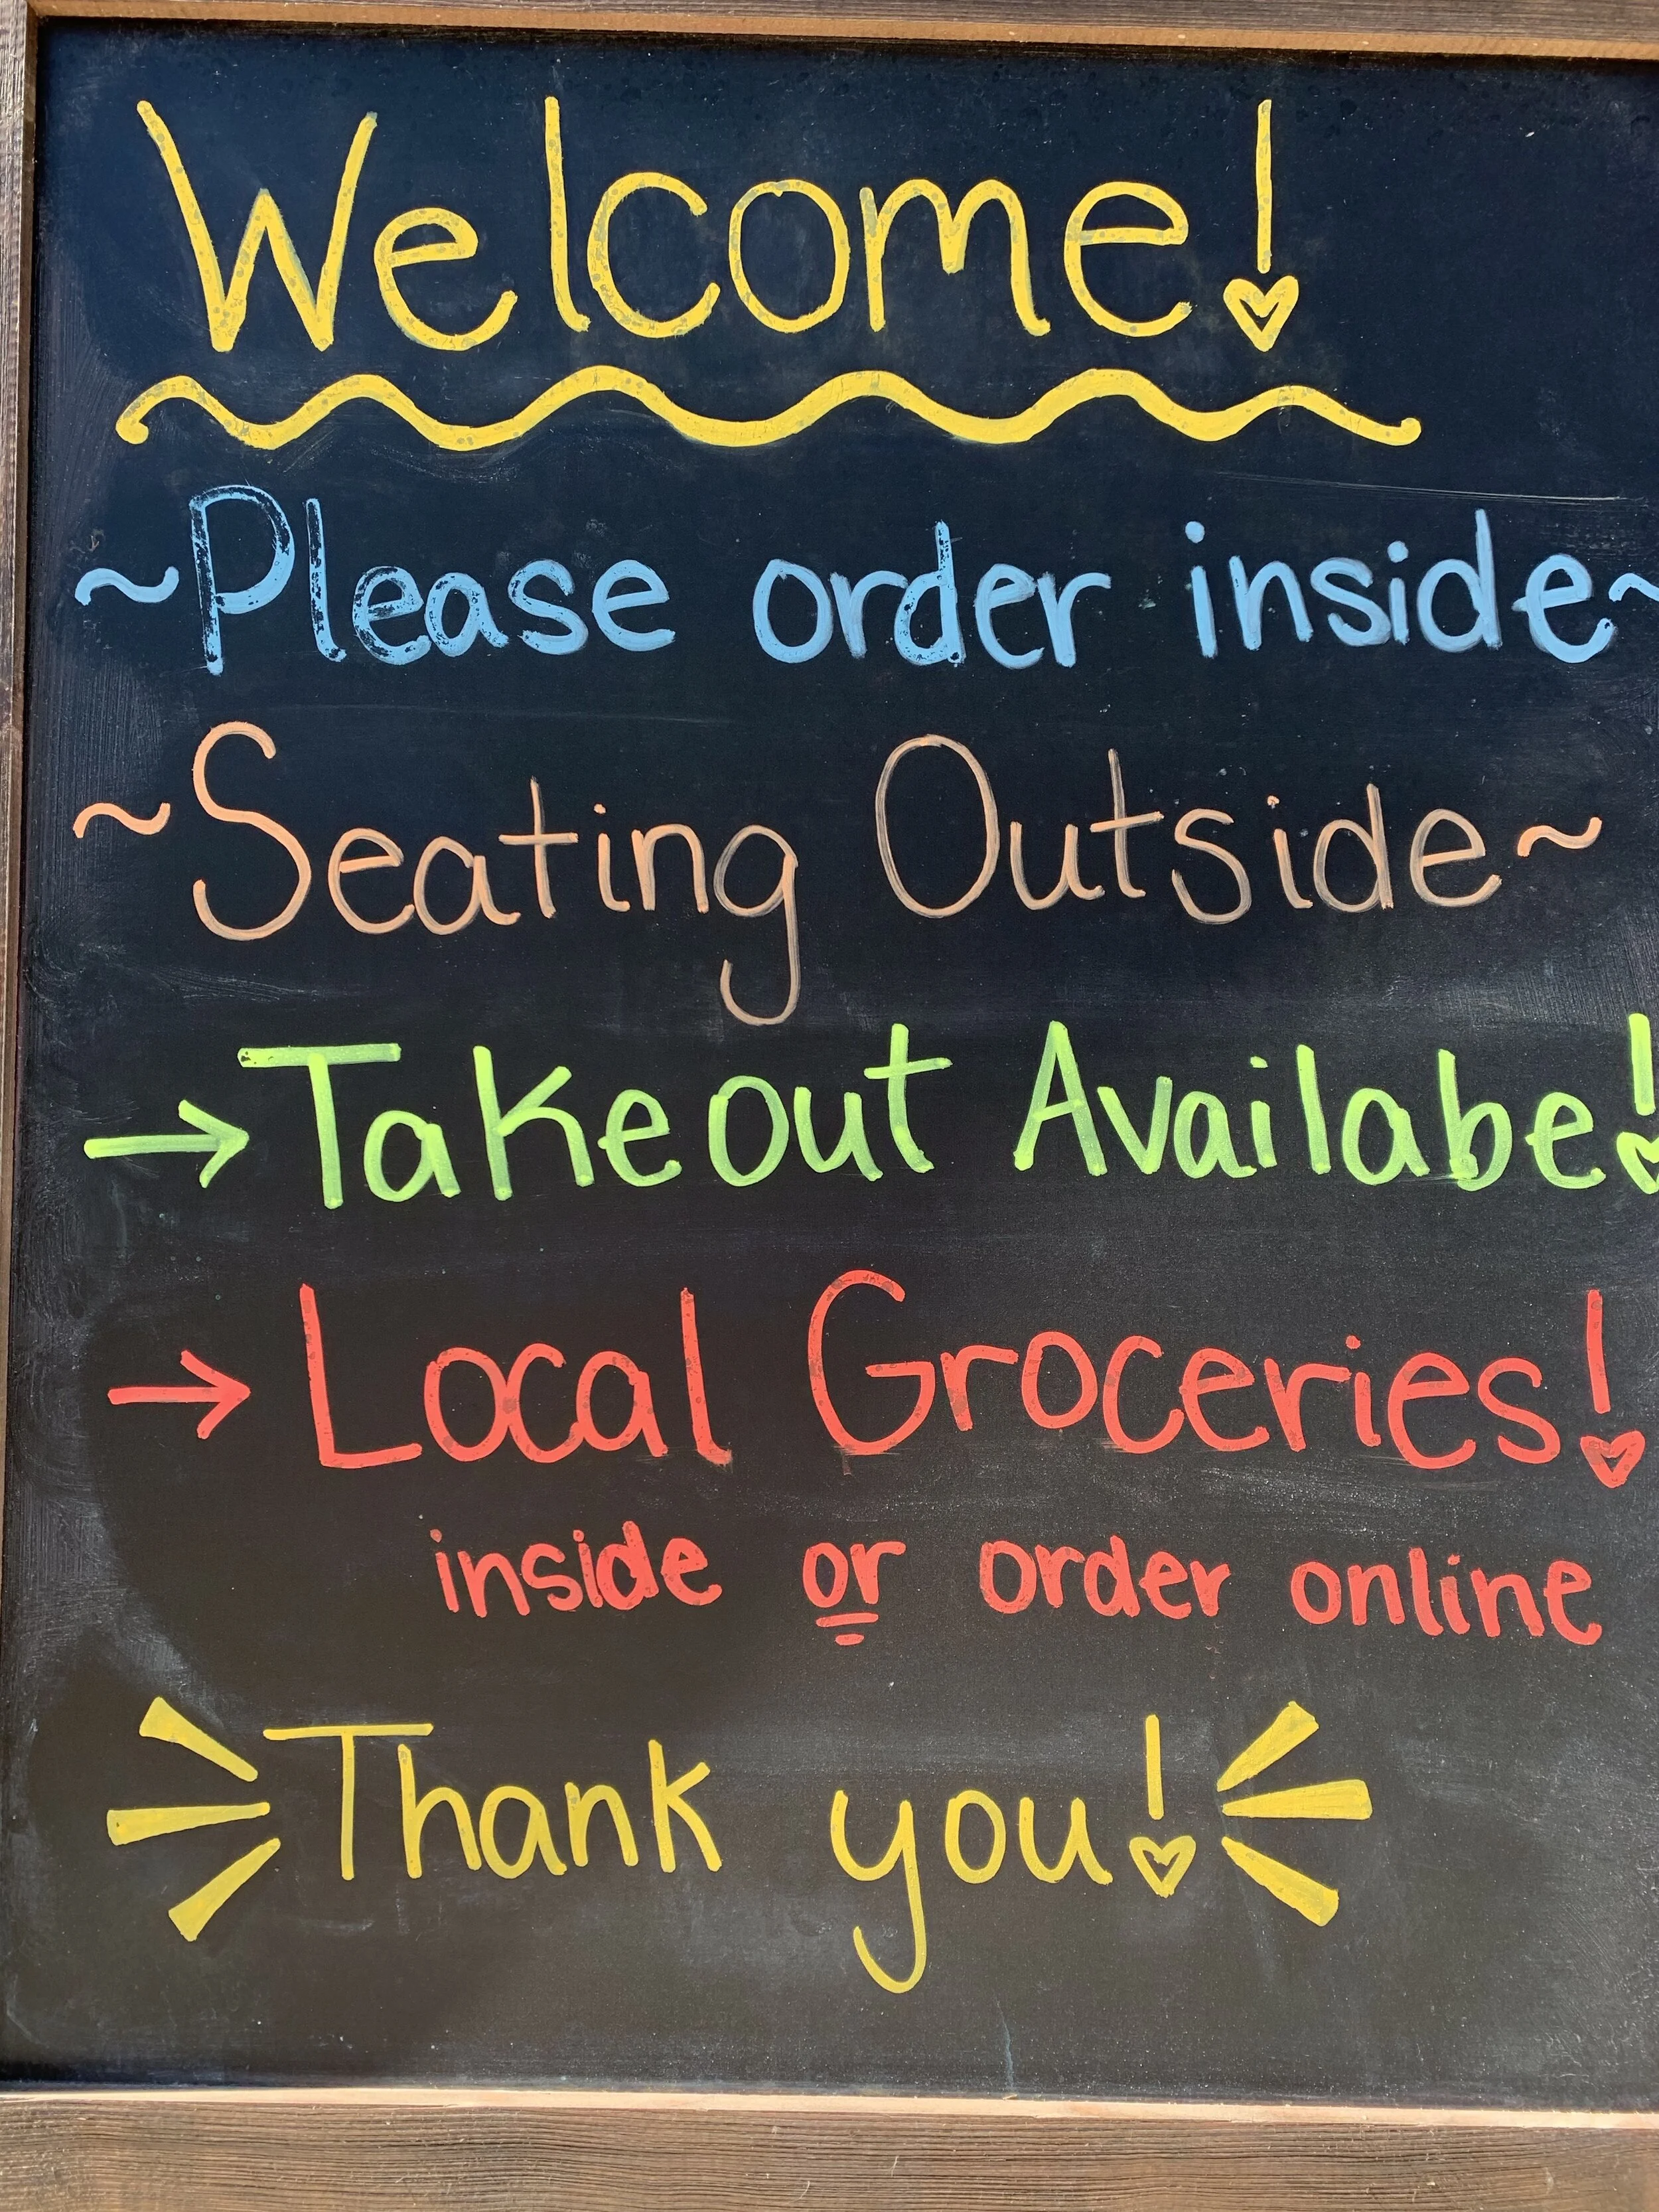 Welcome!
~Please order inside~
~Seating Outside~
→Takeout Availabe!
→Local Groceries!
inside or order online
Thank you!